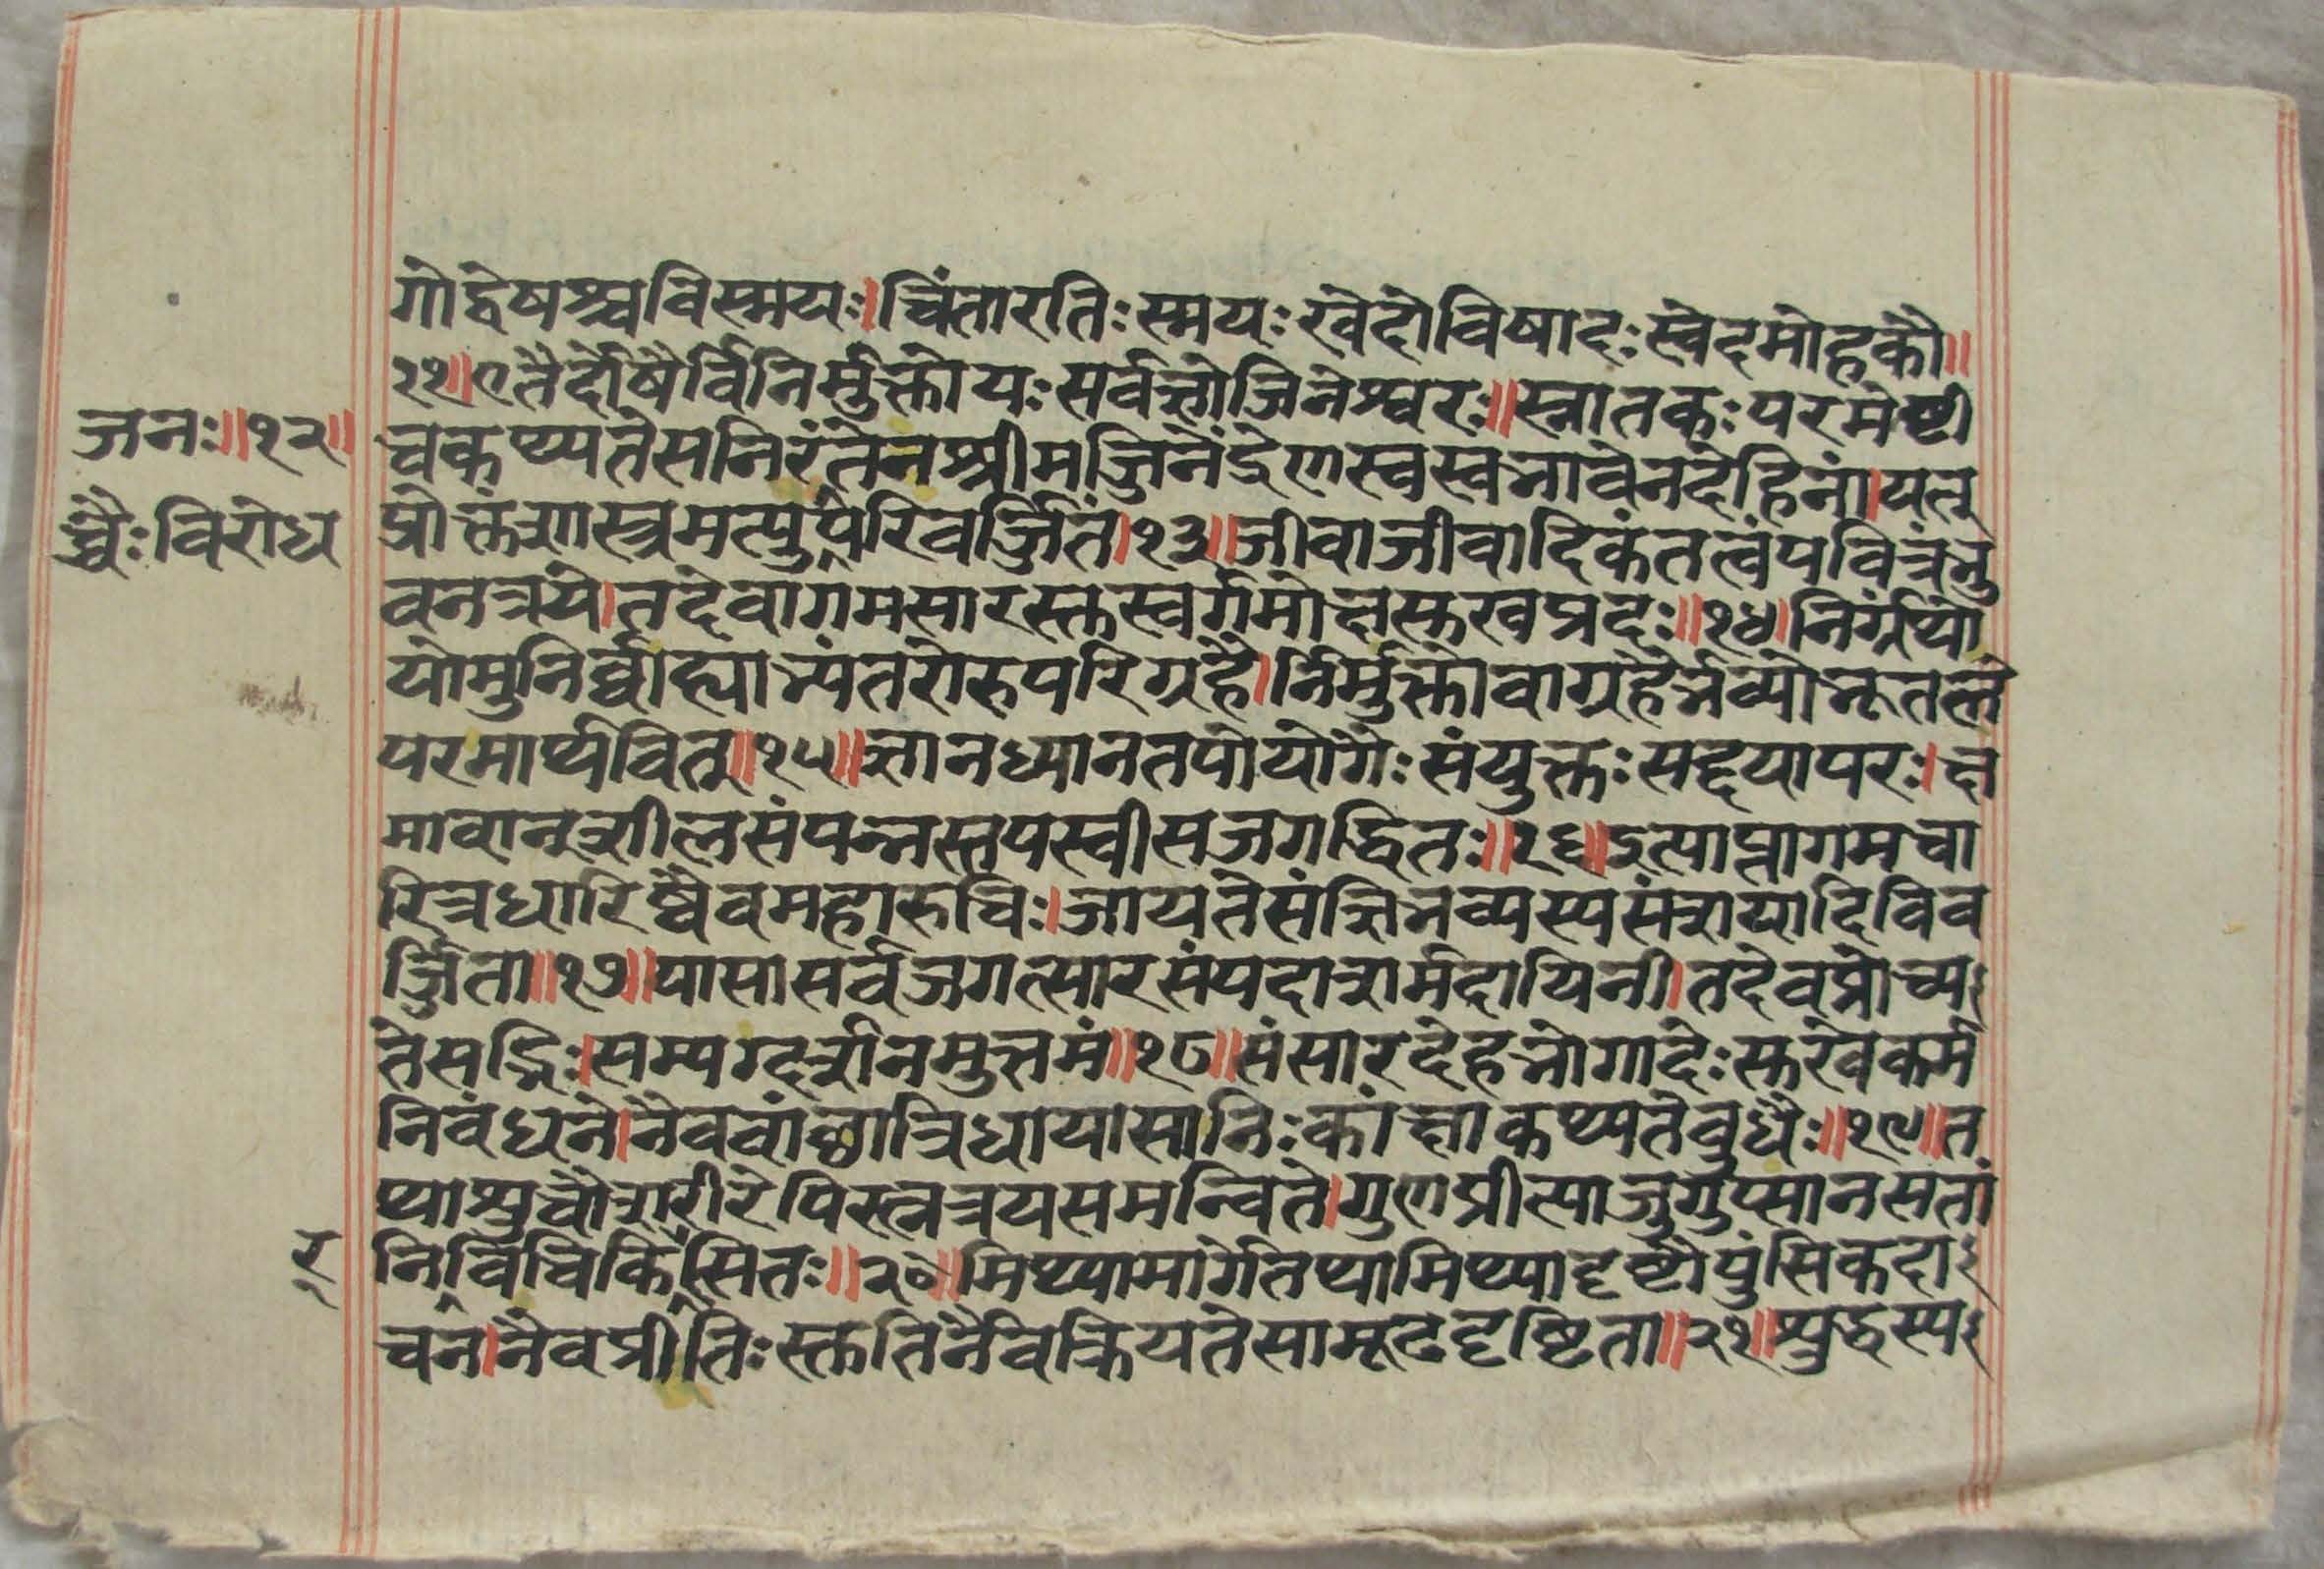 गोद्वेषश्चविस्मयः।चिंतारतिःस्मयःखेदोविषादःस्वेदमोहकौ॥
११॥एतैर्दोषैर्विनिर्मुक्तोयःसर्वज्ञोजिनेश्वरः॥स्नातकःपरमेष्टी
जनः॥१२॥
चकथ्यतेसनिरंतेनश्रीमज्जिनेंद्रेणस्वस्वभावेनदेहिनां।यत्
र्द्धैःविरोध
प्रोक्तंशास्त्रमत्युपरिवर्ज्जितं।१३॥जीवाजीवादिकंतत्वंपवित्रंभु
वनत्रये।तदेवागमसारस्तस्वर्गमोक्षसुखप्रदः॥१४॥निर्ग्रंथो
योमुनिर्ब्बाह्याभ्यंतरोरुपरिग्रहै।र्निर्मुक्तोवाग्रहैर्भव्योभूतले
परमार्थवित्॥१५॥ज्ञानध्यानतपोयोगैःसंयुक्तःसद्दयापरः।क्ष
मावान्शीलसंपन्नस्तपस्वीसजगद्धितः॥१६॥इत्याप्तागमचा
रित्रधारिष्वैवमहारुचिः।जायतेसंज्ञिभव्यस्यसंशयादिविव
र्ज्जिता॥१७॥यासासर्वजगत्सारसंपदाशर्मदायिनी।तदेवप्रोच्य
तेसद्भिः।सम्यग्दर्शनमुत्तमं॥१८॥संसारदेहभोगादेःसुखेकर्म
निबंधने।नैववांछात्रिधायासानिःकांक्षाकथ्यतेबुधैः॥१९॥त
थाशुचौशरीरेपिरत्नत्रयसमन्विते।गुणप्रीत्याजुगुप्सानसतां
र
निर्विचिकित्सितः॥२०॥मिथ्यामार्गेतिथामिथ्यादृष्टौपुंसिकदा
चन।नैवप्रीतिःस्तुतिर्नैवक्रियतेसामूढदृष्टिता॥२१॥शुद्धस्य